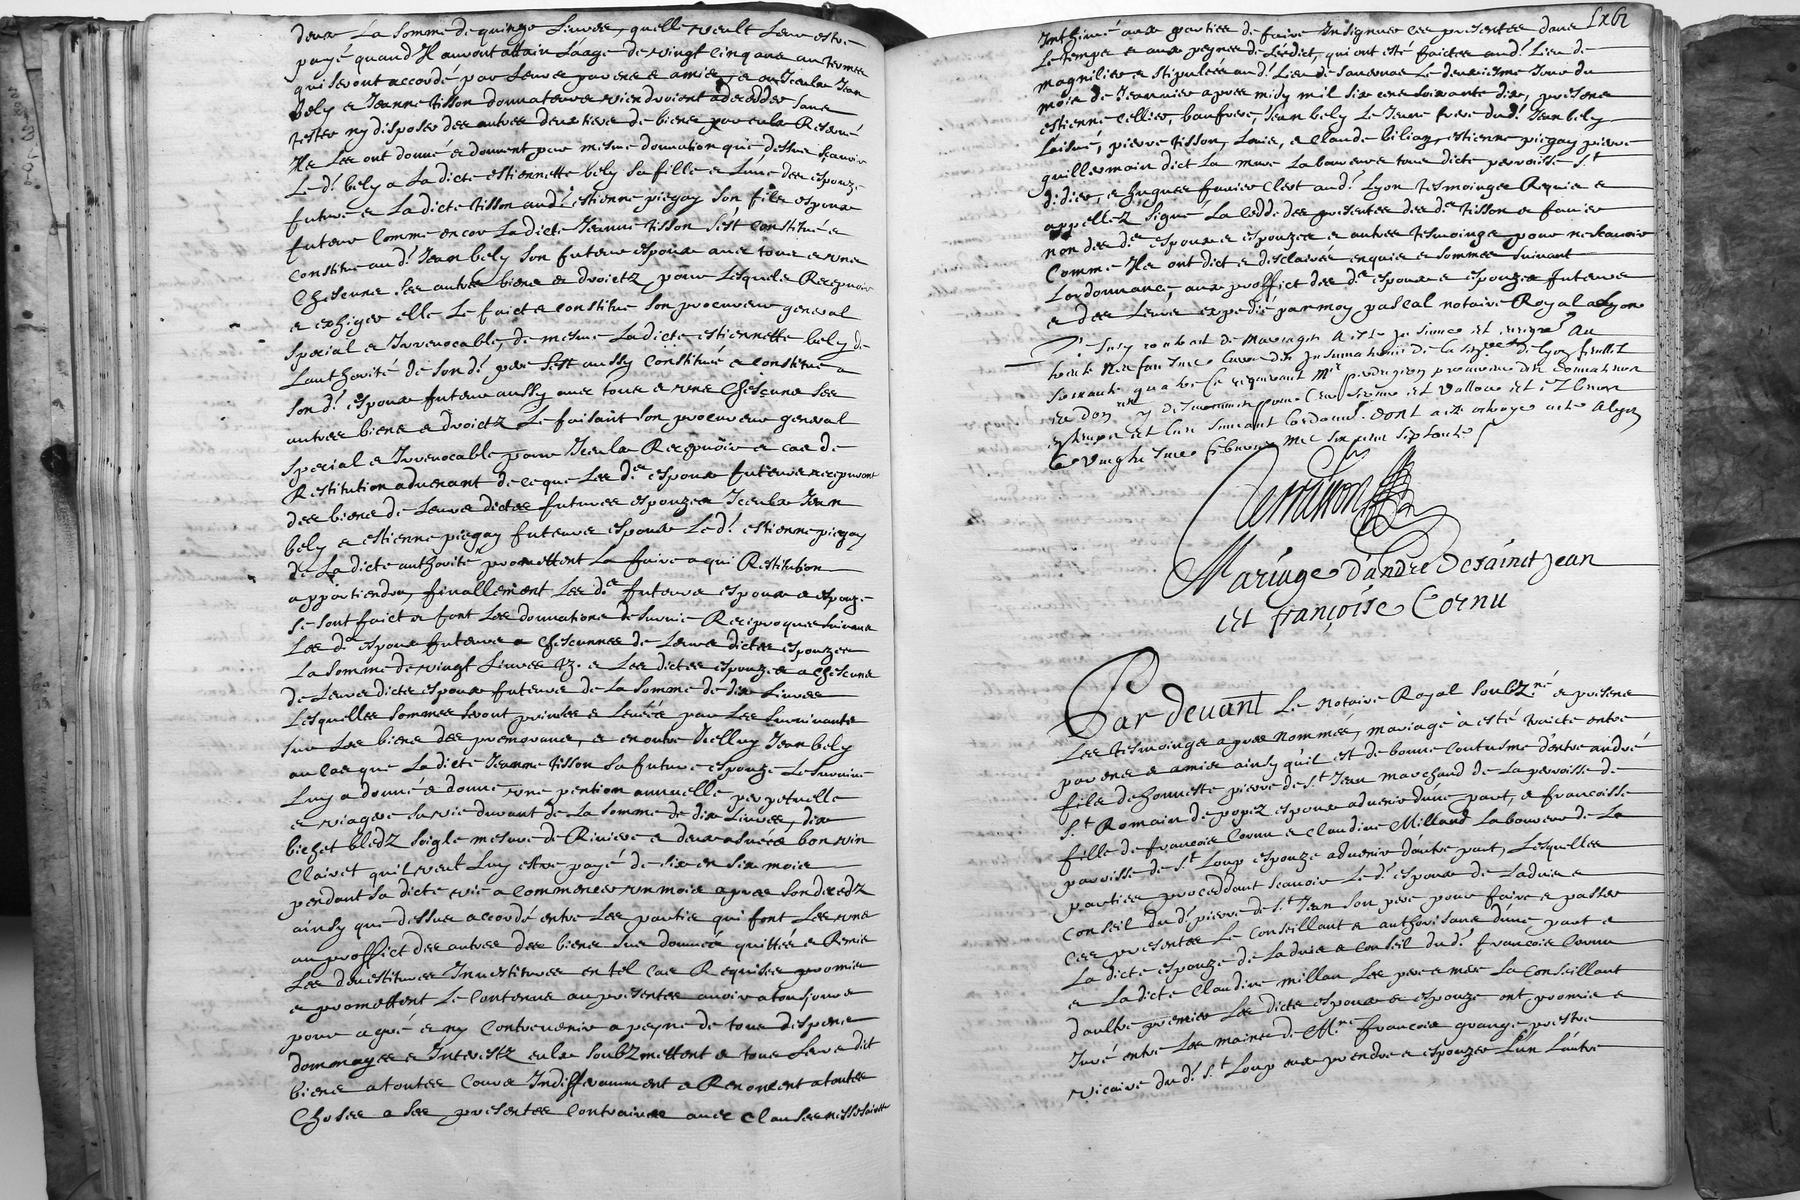 deux la somme de quinze livres, quelle veult leur estre
payé quand Ils auront attain l'aage de vingt cinq ans au termes
qui seront accordé par leurs parens e amis, e ou Iceulx Jean
Bely e Jeanne tisson donnateurs viendroient a decedder sans
tester ny disposer des autres deux tiers de biens par eulx Reservé
Ils les ont donné e donnent par mesme donnation que dessus scavoir
Le d.t bely a la dicte estiennette bely sa fille e l'une des espouze
future e la dicte tisson aud.t estienne piegay son filz espoux
futeur comme encor la dicte Jeanne tisson s'est constitué e
constitue aud.t Jean bely son futeur espoux avec tous e une
Chescune ses autres biens e droictz, pour lesquels Recepvoir
e exhiger elle le faict e constitue son procureur general
special e Irrevocable, de mesme la dicte estiennette bely de
l'authorité de sond.t pere s'est aussy constitué e constitue a
sond.t espoux futeur aussy avec tous e une Chescune ses
autres biens e droictz le faisant son procureur general
special e Irrevocable pour Iceulx Recepvoir e cas de
Restitution advenant de ce que les d.s espoux futeurs recepvront
des biens de leurs dictes futures espouzes Iceulx Jean
bely e estienne piegay futeurs espoux le d.t estienne piegay
de la dicte authorité promettent la faire a qui Restitution
appartiendra, finallement les d.s futeurs espoux e espouze
se sont faict e font les donnations de survie Reciproques suivans
Les d.s espoux futeurs a chescunnes de leurs dictes espouzes
La somme de vingt livres tz. e les dictes espouzes a chescune
de leurs dictes espoux futeurs de la somme de dix livres
Lesquelles sommes seront prinses e levées par les survivants
sur les biens des premorans, e en outre Icelluy Jean bely
au cas que la dicte Jeanne tisson sa future espouze le survive
Luy a donné e donne une pention annuelle perpetuelle
e viagere sa vie durant de la somme de dix livres, dix
bichet bledz soigle mesure de Riviere e deux asnées bon vin
Clairet qu'il veut luy estre payé de six en six mois
pendant sa dicte vie a commencer un mois apres son decedz
ainsy que dessus accordé entre les partie qui font les uns
au proffict des autres des biens sus donnés quittés e Remis
Les devestitures Investitures en tel cas Requises promis
e promettent le contenus au presentes avoir a tousjours
pour agré e ny contrevenir a peyne de tous despens
dommages e Interestz eulx soubzmettent e tous leurs dict
biens a toutes cours Indifferamment e Renoncent a toutes
Choses a ses presentes contraires avec clauses nessessaires
Lxbj
Inthimé aux parties de faire Insignuer les presentes dans
le temps e aux peynes de l'edict, qui ont esté faictes aud.t lieu de
magnilier e stipulées aud.t lieu de savernas le deuxiesme Jour du
mois de Jeanvier apres midy mil six cens soixante dix, presens
estienne cellier, baufrere, Jean bely le Jeune frere dud.t Jean bely
laisné, pierre tisson, Louis, e Claude biliay, estienne piegay pierre
guillermain dict la mure laboureurs tous dicte parroisse S.t
didier, e hugues favier clerc aud.t Lyon tesmoings Requis e
appellez signé la cedde des presentes des d.s tisson e favier
non des d.s espoux e espouzes e autres tesmoings pour ne scavoir
Comme Ils ont dict e desclairés enquis e sommés suivant
Lordonnance, aux proffict des d.s espoux e espouzes futeurs
e des leurs expedié par moy pascal notaire Royal a Lyon
soixante quatre ce requerant
le vingtiesme febvrier mil six cens septante
Mariage d'andré Desainct Jean
et françoise Cornu
Par devant le Notaire Royal soubz.né e presens
Les tesmoings apres Nommés, mariage à esté traicte entre
parens e amis ainsy quil est de bonne coutusme d'entre andré
fils de honneste pierre de S.t Jean marchand de la parroisse de
S.t Romain de popez espoux advenir d'une part, e francoise
fille de francois Cornu e Claudine Milland laboureur de la
parroisse de S.t Loup espouze advenir d'autre part, Lesquelles
parties proceddant scavoir le d.t espoux de l'advis e
conseil dud.t pierre de S.t Jean son pere pour faire e passer
ces presentes le conseillant e authorisans d'une part e
La dicte espouze de l'advis e conseil dud.t francois Cornu
e la dicte Claudine millan ses pere e mere la conseillant
d'aultre premier les dictes espoux e espouze ont promis e
Juré entre les mains de M.re francois grange prestre
vicaire dud.t S.t Loup eux prendre e espouzer l'un l'autre